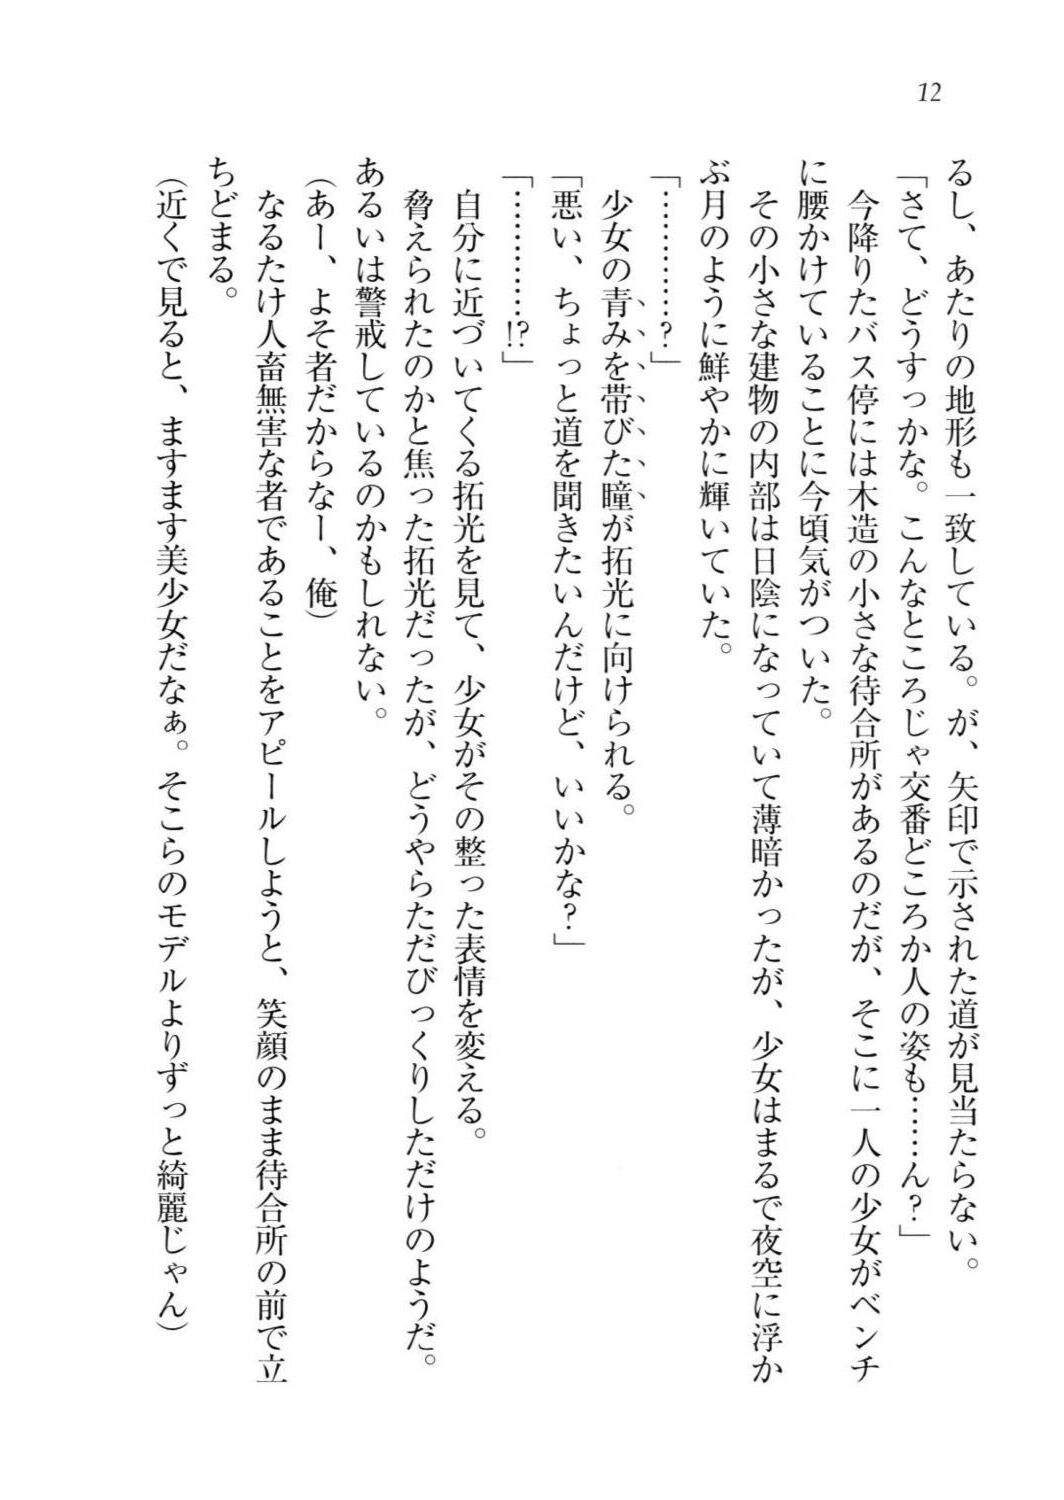 12
るし、あたりの地形も一致している。が、矢印で示された道が見当たらない。
「さて、どうすっかな。こんなところじゃ交番どころか人の姿も……ん？」
今降りたバス停には木造の小さな待合所があるのだが、そこに一人の少女がベンチ
に腰かけていることに今頃気がついた。
その小さな建物の内部は日陰になっていて薄暗かったが、少女はまるで夜空に浮か
ぶ月のように鮮やかに輝いていた。
「…………？」
少女の青みを帯びた瞳が拓光に向けられる。
「悪い、ちょっと道を聞きたいんだけど、いいかな？」
「…………!?」
自分に近づいてくる拓光を見て、少女がその整った表情を変える。
脅えられたのかと焦った拓光だったが、どうやらただびっくりしただけのようだ。
あるいは警戒しているのかもしれない。
（あー、よそ者だからなー、俺）
なるたけ人畜無害な者であることをアピールしようと、笑顔のまま待合所の前で立
ちどまる。
（近くで見ると、ますます美少女だなぁ。そこらのモデルよりずっと綺麗じゃん）